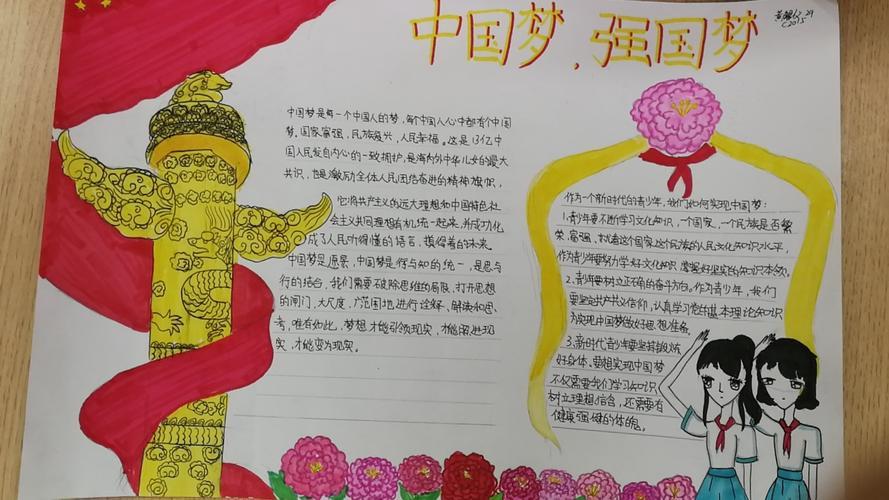 中国梦，强国梦
中国梦是每一个中国人的梦，每个中国人心中都有个中国
梦。国家富强，民族复兴，人民幸福。这是13亿中
国人民发自内心的一致拥护，是海内外中华儿女的最大
共识，也是激励全体人民团结奋进的精神旗帜，
它将共产主义的远大理想和中国特色社
会主义共同理想有机统一起来，并成功化
成了人民听得懂的语言，摸得着的未来。
中国梦是愿景，中国梦是行与知的统一，是思与
行的结合，我们需要破除思维的局限，打开思想
的闸门，大尺度，广范围地进行诠释、解读和思
考，唯有如此，梦想才能引领现实，才能阔进现
实，才能变为现实。
作为一个新时代的青少年，我们如何实现中国梦：
1.青少年要不断学习文化知识，一个国家，一个民族是否繁
荣、富强，就看这个国家这个民族的人民文化知识水平，
作为青少年要努力学好文化知识，掌握好坚实的知识本领。
2、青少年要树立正确的奋斗方向。作为青少年，我们
要坚定共产主义信仰，认真学习党的基本理论知识
为实现中国梦做好思想准备。
3.新时代青少年要坚持锻炼
好身体。要想实现中国梦
不仅需要我们学习知识
树立理想信念，还需要有
健康强健的体魄。